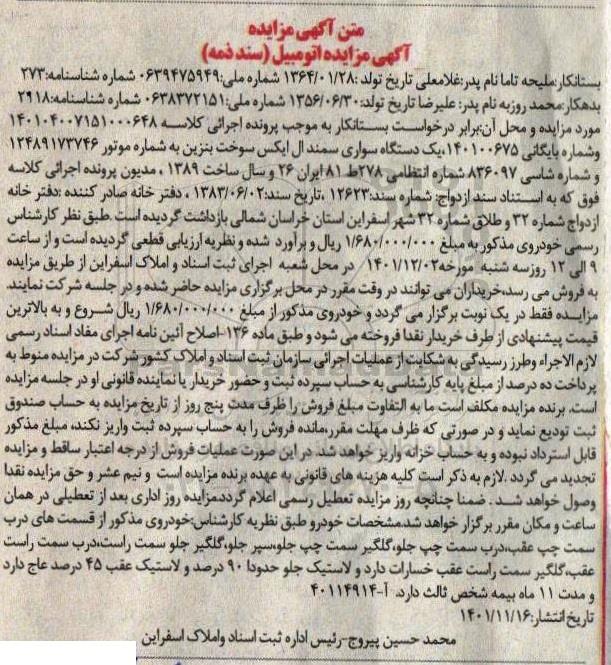 متن آگهی مزایده
آگهی مزایده اتومبیل (سند ذمه)
بستانکار:ملیحه تاما نام پدر:غلامعلی تاریخ تولد :۱۳۶۴/۰۱/۲۸ شماره ملی:۰۶۳۹۴۷۵۹۴۹ شماره شناسنامه:۲۷۳
بدهکار:محمد روزبه نام پدر: علیرضا تاریخ تولد:۱۳۵۶/۰۶/۳۰ شماره ملی:۰۶۳۸۳۷۲۱۵۱ شماره شناسنامه:۲۹۱۸
مورد مزایده و محل آن:برابر درخواست بستانکار به موجب پرونده اجرائی کلاسه ۱۴۰۱۰۴۰۰۷۱۵۱۰۰۰۶۴۸
وشماره بایگانی ۱۴۰۱۰۰۶۷۵،یک دستگاه سواری سمند ال ایکس سوخت بنزین به شماره موتور ۱۲۴۸۹۱۷۳۷۴۶
و شماره شاسی ۸۳۶۰۹۷ شماره انتظامی ۲۷۸ط ۸۱ ایران ۲۶ و سال ساخت ۱۳۸۹ ، مدیون پرونده اجرائی کلاسه
فوق که به استناد سند ازدواج: شماره سند:۱۲۶۲۳ ،تاریخ سند:۱۳۸۳/۰۶/۰۲ ، دفتر خانه صادر کننده :دفتر خانه
ازدواج شماره ۳۲ و طلاق شماره ۳۲ شهر اسفراین استان خراسان شمالی بازداشت گردیده است .طبق نظر کارشناس
رسمی خودروی مذکور به مبلغ ۱/۶۸۰/۰۰۰/۰۰۰ ریال و برآورد شده و نظریه ارزیابی قطعی گردیده است و از ساعت
۹ الی ۱۲ روز سه شنبه مورخه ۱۴۰۱/۱۲/۰۲ در محل شعبه اجرای ثبت اسناد و املاک اسفراین از طریق مزایده
به فروش می رسد،خریداران می توانند در وقت مقرر در محل برگزاری مزایده حاضر شده و در جلسه شرکت نمایند.
مزایده فقط در یک نوبت برگزار می گردد و خودروی مذکور از مبلغ ۱/۶۸۰/۰۰۰/۰۰۰ ریال شروع و به بالاترین
قیمت پیشنهادی از طرف خریدار نقدا فروخته می شود و طبق ماده ۱۳۶-اصلاح آئین نامه اجرای مفاد اسناد رسمی
لازم الاجراء وطرز رسیدگی به شکایت از عملیات اجرائی سازمان ثبت اسناد و املاک کشور شرکت در مزایده منوط به
پرداخت ده درصد از مبلغ پایه کارشناسی به حساب سپرده ثبت و حضور خریدار یا نماینده قانونی او در جلسه مزایده
است. برنده مزایده مکلف است ما به التفاوت مبلغ فروش را ظرف مدت پنج روز از تاریخ مزایده به حساب صندوق
ثبت تودیع نماید و در صورتی که ظرف مهلت مقرر،مانده فروش را به حساب سپرده ثبت واریز نکند، مبلغ مذکور
قابل استرداد نبوده و به حساب خزانه واریز خواهد شد. در این صورت عملیات فروش از درجه اعتبار ساقط و مزایده
تجدید می گردد .لازم به ذکر است کلیه هزینه های قانونی به عهده برنده مزایده است و نیم عشر و حق مزایده نقدا
وصول خواهد شد . ضمنا چنانچه روز مزایده تعطیل رسمی اعلام گردد،مزایده روز اداری بعد از تعطیلی در همان
ساعت و مکان مقرر برگزار خواهد شد.مشخصات خودرو طبق نظریه کارشناس:خودروی مذکور از قسمت های درب
سمت چپ عقب،درب سمت چپ جلو،گلگیر سمت چپ جلو،سپر جلو،گلگیر جلو سمت راست،درب سمت راست
عقب،گلگیر سمت راست عقب خسارات دارد و لاستیک جلو حدودا ۹۰ درصد و لاستیک عقب ۴۵ درصد عاج دارد
و مدت ۱۱ ماه بیمه شخص ثالث دارد. آ-۴۰۱۱۴۹۱۴
تاریخ انتشار:۱۴۰۱/۱۱/۱۶
محمد حسین پیروج-رئیس اداره ثبت اسناد واملاک اسفراین